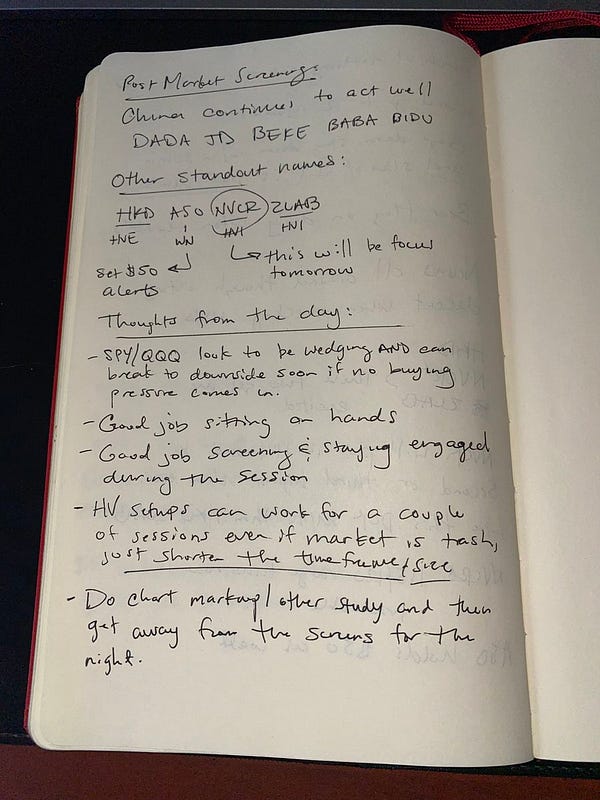 Post Market Screening:
China continues to act well
DADA JD BEKE BABA BIDU
Other standout names:
HKD ASO NVCR ZLAB
HNE WN HV1 HV1
set $50 this will be focus
alerts tomorrow
Thoughts from the day:
- SPY/QQQ look to be wedging AND can
break to downside soon if no buying
pressure comes in.
- Good job sitting on hands
- Good job screening & staying engaged
during the session
- HV setups can work for a couple
of sessions even if market is trash,
just shorten the timeframe/size
- Do chart markup/other study and then
get away from the screens for the
night.